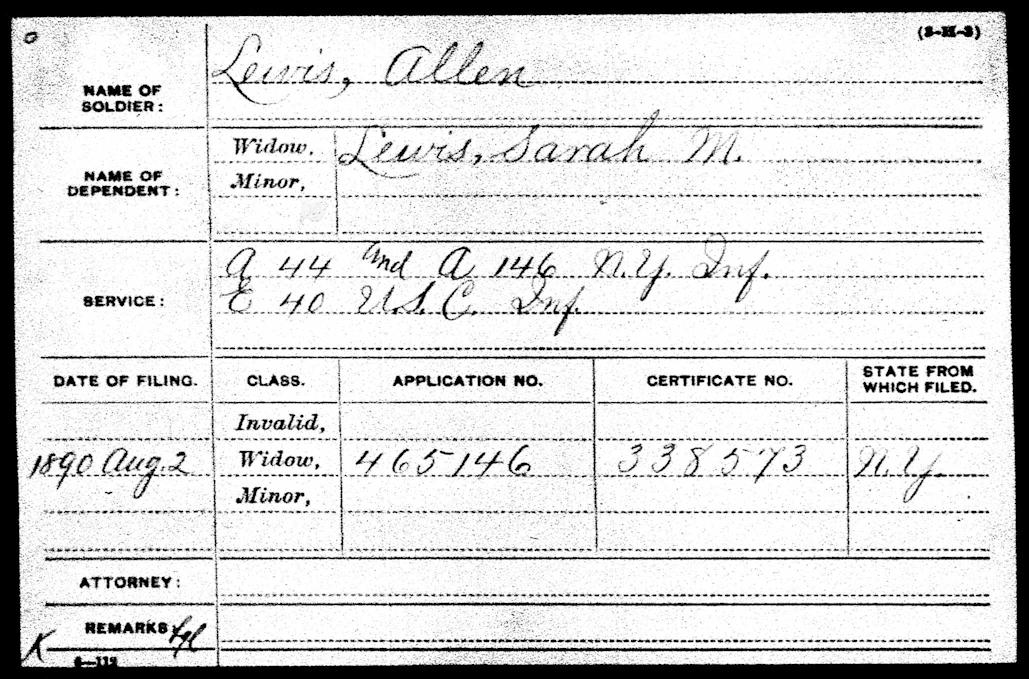 (3-H-3)
NAME OF SOLDIER: Lewis, Allen
NAME OF DEPENDENT: Widow, Lewis, Sarah M.
Minor,
SERVICE: A 44 and A 146 N.Y. Inf.
E 40 U.S.C. Inf.
DATE OF FILING. CLASS. APPLICATION NO. CERTIFICATE NO. STATE FROM WHICH FILED.
Invalid,
1890 Aug. 2 Widow, 465146 338573 N.Y.
Minor,
ATTORNEY:
REMARKS:
K